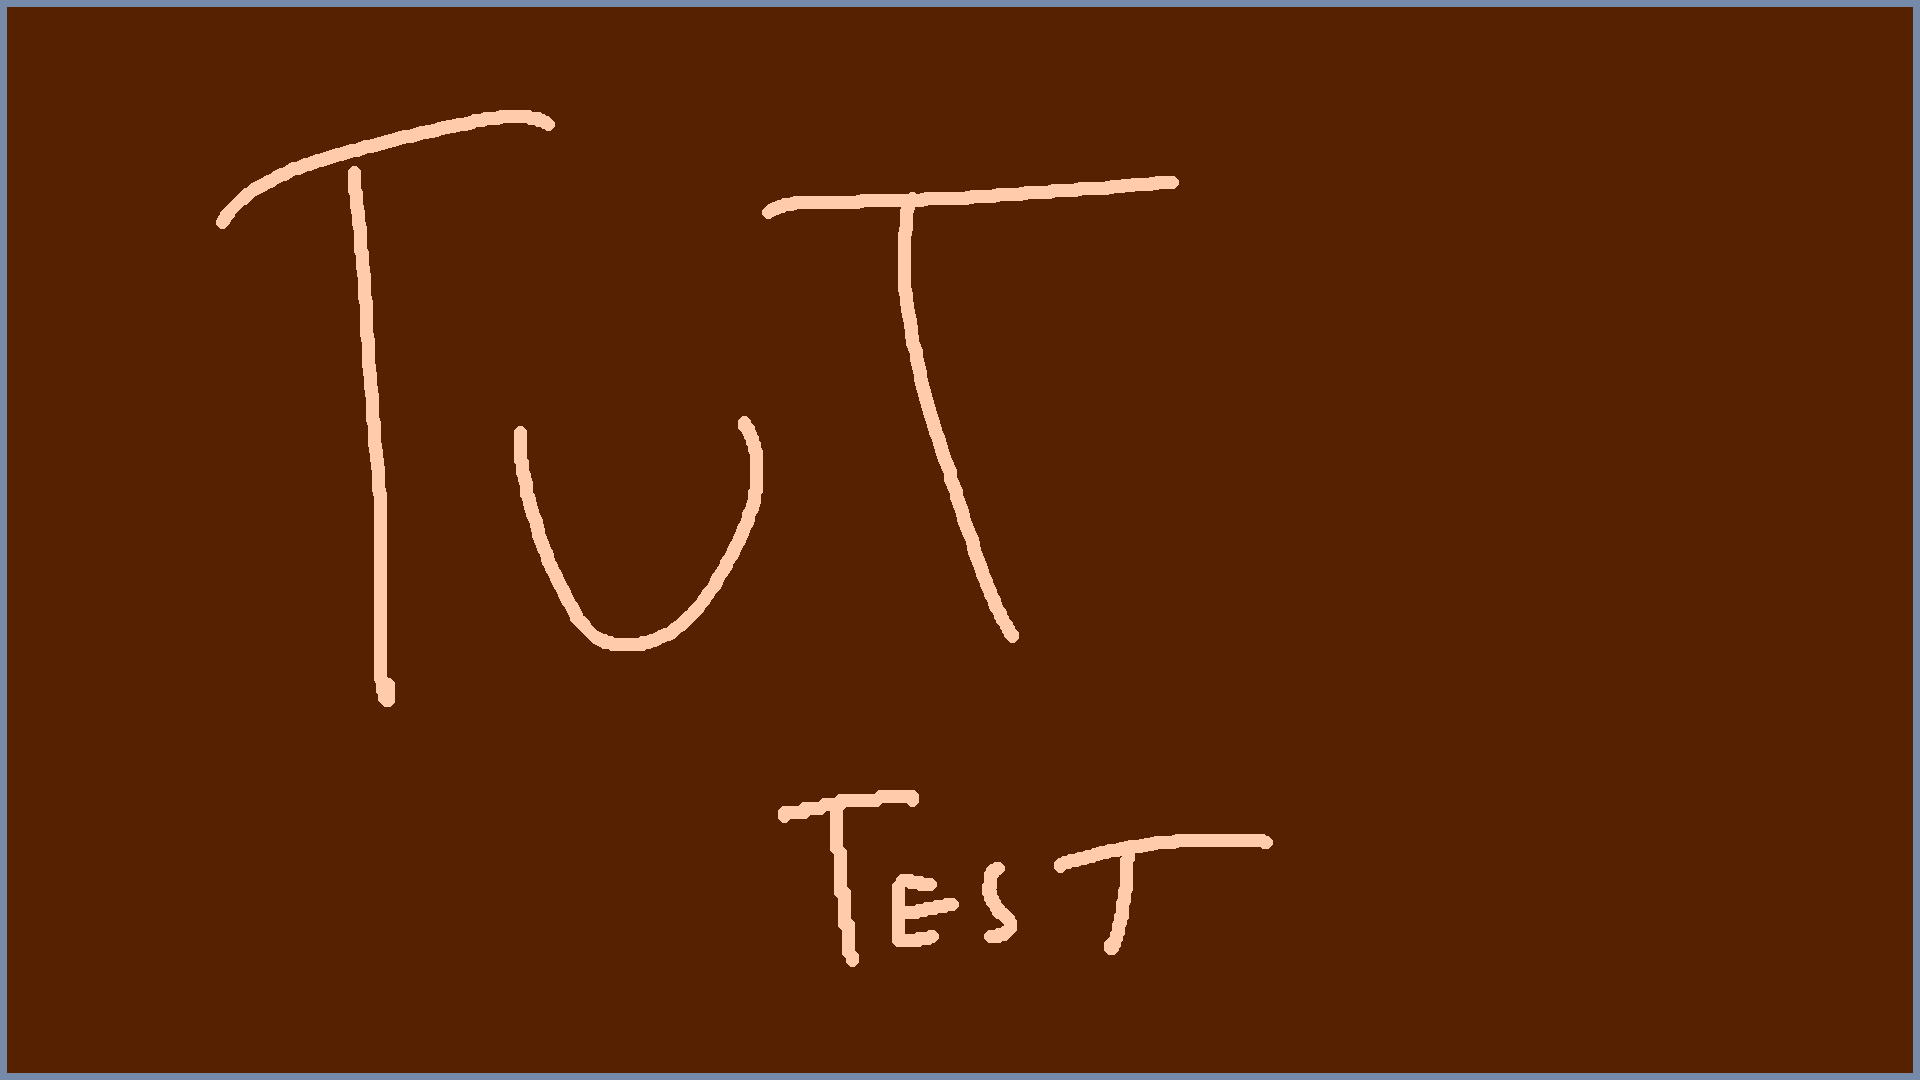 TUT
TEST